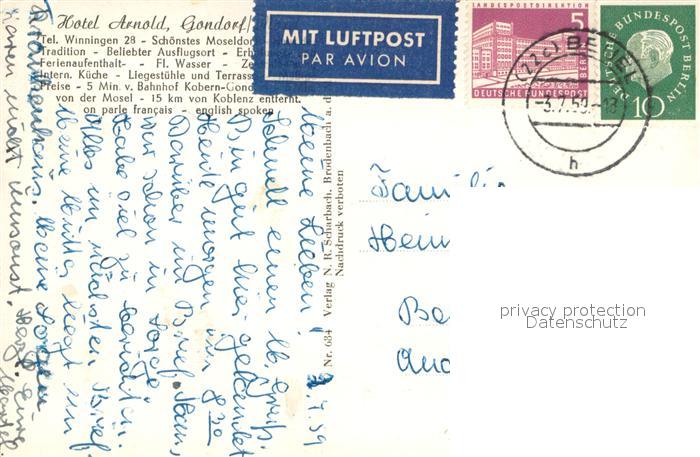 Hotel Arnold, Gondorf/
Tel. Winningen 28 - Schönstes Moseldor
Tradition - Beliebter Ausflugsort - Erh
Ferienaufenthalt - Fl. Wasser - Ze
Intern. Küche - Liegestühle und Terrass
Preise - 5 Min. v. Bahnhof Kobern-Gondo
von der Mosel - 15 km von Koblenz entfernt.
on parle français - english spoken
MIT LUFTPOST
PAR AVION
LANDESPOSTDIREKTION
5
BERLIN
DEUTSCHE BUNDESPOST
DEUTSCHE BUNDESPOST BERLIN
10
BEUEL
-3.7.59.-18
h
Nr. 634 Verlag N. R. Scharbach, Brodenbach a. d.
Nachdruck verboten
7.59
Meine Lieben!
Schnell einen lb. Gruß.
Bin gut hier gelandet
Heute morgen um 8
Darüber im Brief.
war schon in Sorge.
Habe viel zu berichten.
Alles im nächsten Brief.
Meine Mutter liegt im
Krankenhaus. Meine Sorgen
waren nicht umsonst. Herzl. Eure
Familie
Hein
Be
And
privacy protection
Datenschutz